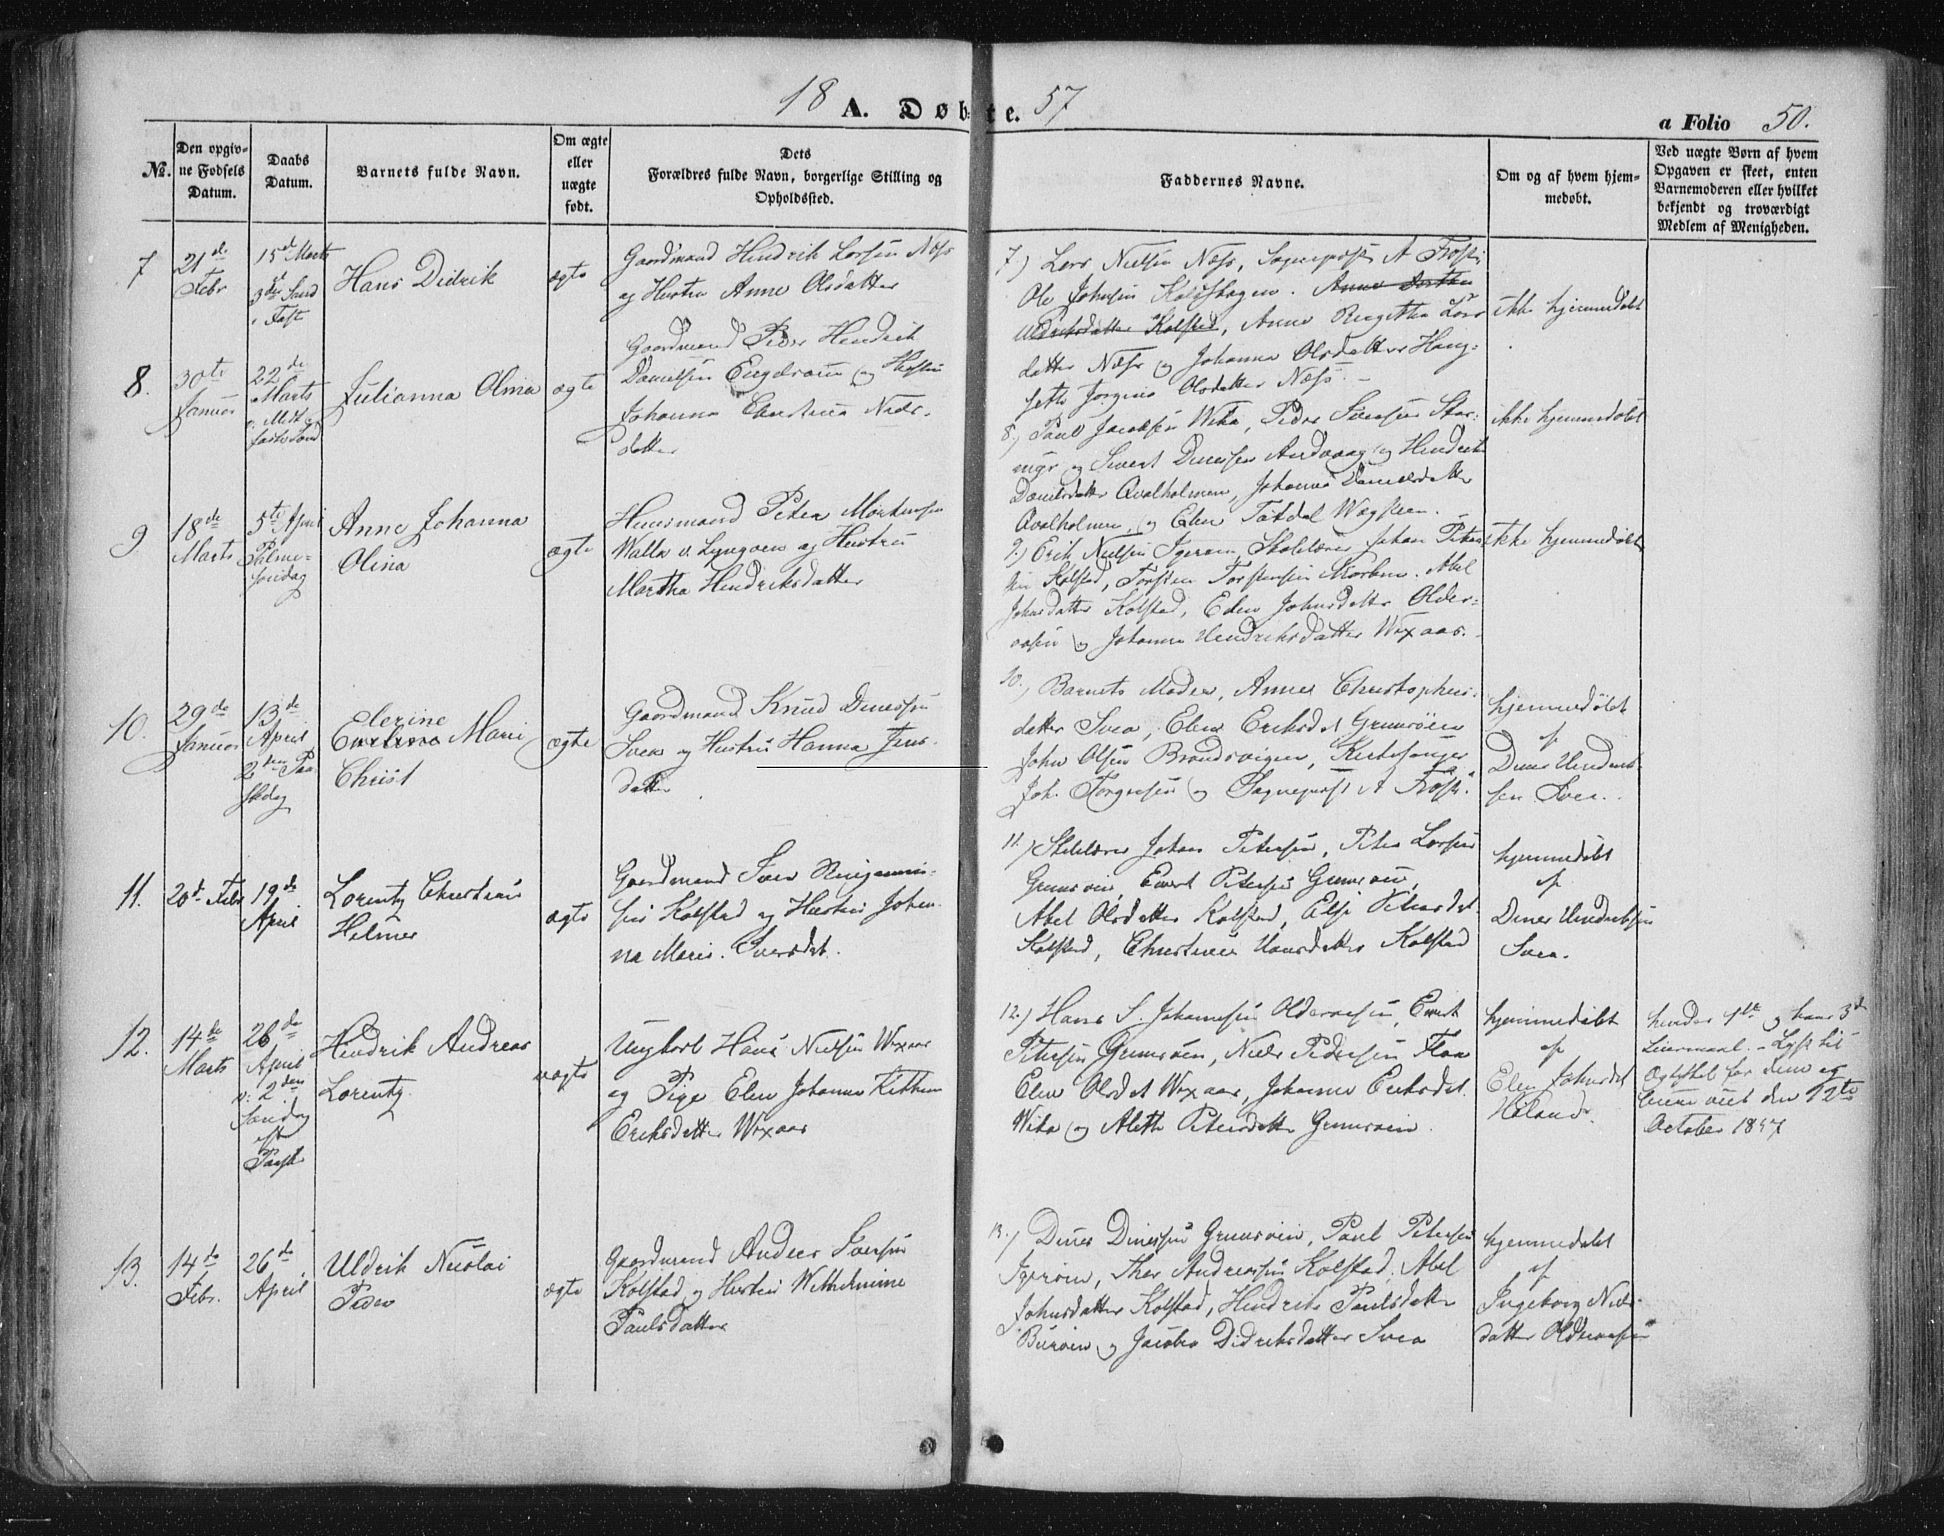 18 A. Døbte. 57
a Folio 50.
№.
Den opgivne Fødsels Datum.
Daabs Datum.
Barnets fulde Navn.
Om ægte eller uægte født.
Dets Forældres fulde Navn, borgerlige Stilling og Opholdssted.
Faddernes Navne.
Om og af hvem hjemmedøbt.
Ved uægte Børn af hvem Opgaven er skeet, enten Barnemoderen eller hvilket bekjendt og troværdigt Medlem af Menigheden.
7
21de
Febr
15de Marts
3die Sønd
i Faste
Hans Didrik
ægte
Gaardmand Hendrik Larsen Næss
og Hustru Anne Olsdatter
7.) Lars Nielsen Næss, Sogneprest A
Ole Johnsen
Kolstad, Anne Birgitha Lars
datter Næss og Johanna Olsdatter Haug-
Jørgine Olsdatter Næss.
ikke hjemmedøbt
8.
30te
Januar
22de
Marts
Midt-
faste Sønd
Julianna Olina
ægte
Gaardmand Peder Hendrik
Danielsen og Hustru
Johanna Christina Niels-
datter
8.) Paul Jacobsen Wika, Peder Svensen
og Sivert Dinessen Andvaag og
Danielsdatter Qvalholmen, Johanna Danielsdatter
Qvalholmen, og Elen
ikke hjemmedøbt
9
18de
Marts
5te April
Palme-
søndag
Anne Johanna
Olina
ægte
Huusmand Peter Mortensen
Walla v. Lyngøen og Hustru
Martha Hendriksdatter
9.) Erik Nielsen Igerøen, Skolelærer Johan Peter-
sen Kolstad, Torsten Torstensen Abel
Johnsdatter Kolstad, Elen Johnsdatter Older-
og Johanna Hendriksdatter Wixaas.
ikke hjemmedøbt
10.
29de
Januar
13de
April
2den Paa-
skedag
Elerine
Mari
Christ
ægte
Gaardmand Knud Dinessen
Svea og Hustru Hanna Jens-
datter
10.) Barnets Moder, Anne Christophers-
datter Svea, Elen Eriksdt Grunsøien
John Olsen Brandsvigen, Kirkesanger
Joh. Torgersen og Sogneprest A
hjemmedøbt
af
Dines Hendrik-
sen Svea.
11.
20de Febr
19de
April
Lorentz Christian
Helmer
ægte
Gaardmand Sven
sen Kolstad og Hustru Johan-
na Marie Siversdt.
11.) Skolelærer Johan Petersen, Peter Larsen
Grunsøien, Evert Petersen Grunsøien,
Abel Olsdatter Kolstad, Else
Kolstad, Christine Hansdatter Kolstad
hjemmedøbt
af
Dines Hendriksen
Svea.
12.
14de
Marts
26de
April
2den
Søndag
eft
Paaske
Hendrik Andreas
Lorentz
uægte
Ungkarl Hans Nielsen Wixaas
og Pige Elen Johanna
Eriksdatter Wixaas
12.) Hans S. Johannesen Evert
Petersen Grunsøien, Niels Pedersen
Elen Olsdt Wixaas, Johanna Eriksdt.
Wika og Aleth Petersdatter Grunsøien.
hjemmedøbt
af
Elen Johnsdt
hendes 1ste og hans 3de
Leiermaal. Lyst til
Ægteskab for dem
den 12te
October 1857
13.
14de
Febr.
26de
April
Uldrik Nicolai
Peder
ægte
Gaardmand Andreas Svensen
Kolstad og Hustru Wilhelmine
Paulsdatter
13.) Dines Dinessen Grunsøien, Paul Petersen
Igerøen, Thor Andreassen Kolstad, Abel
Johnsdatter Kolstad, Hendrikke Paulsdatter
Burøien og Jacobia Didriksdatter Svea
hjemmedøbt
af
Ingeborg Niels-
datter